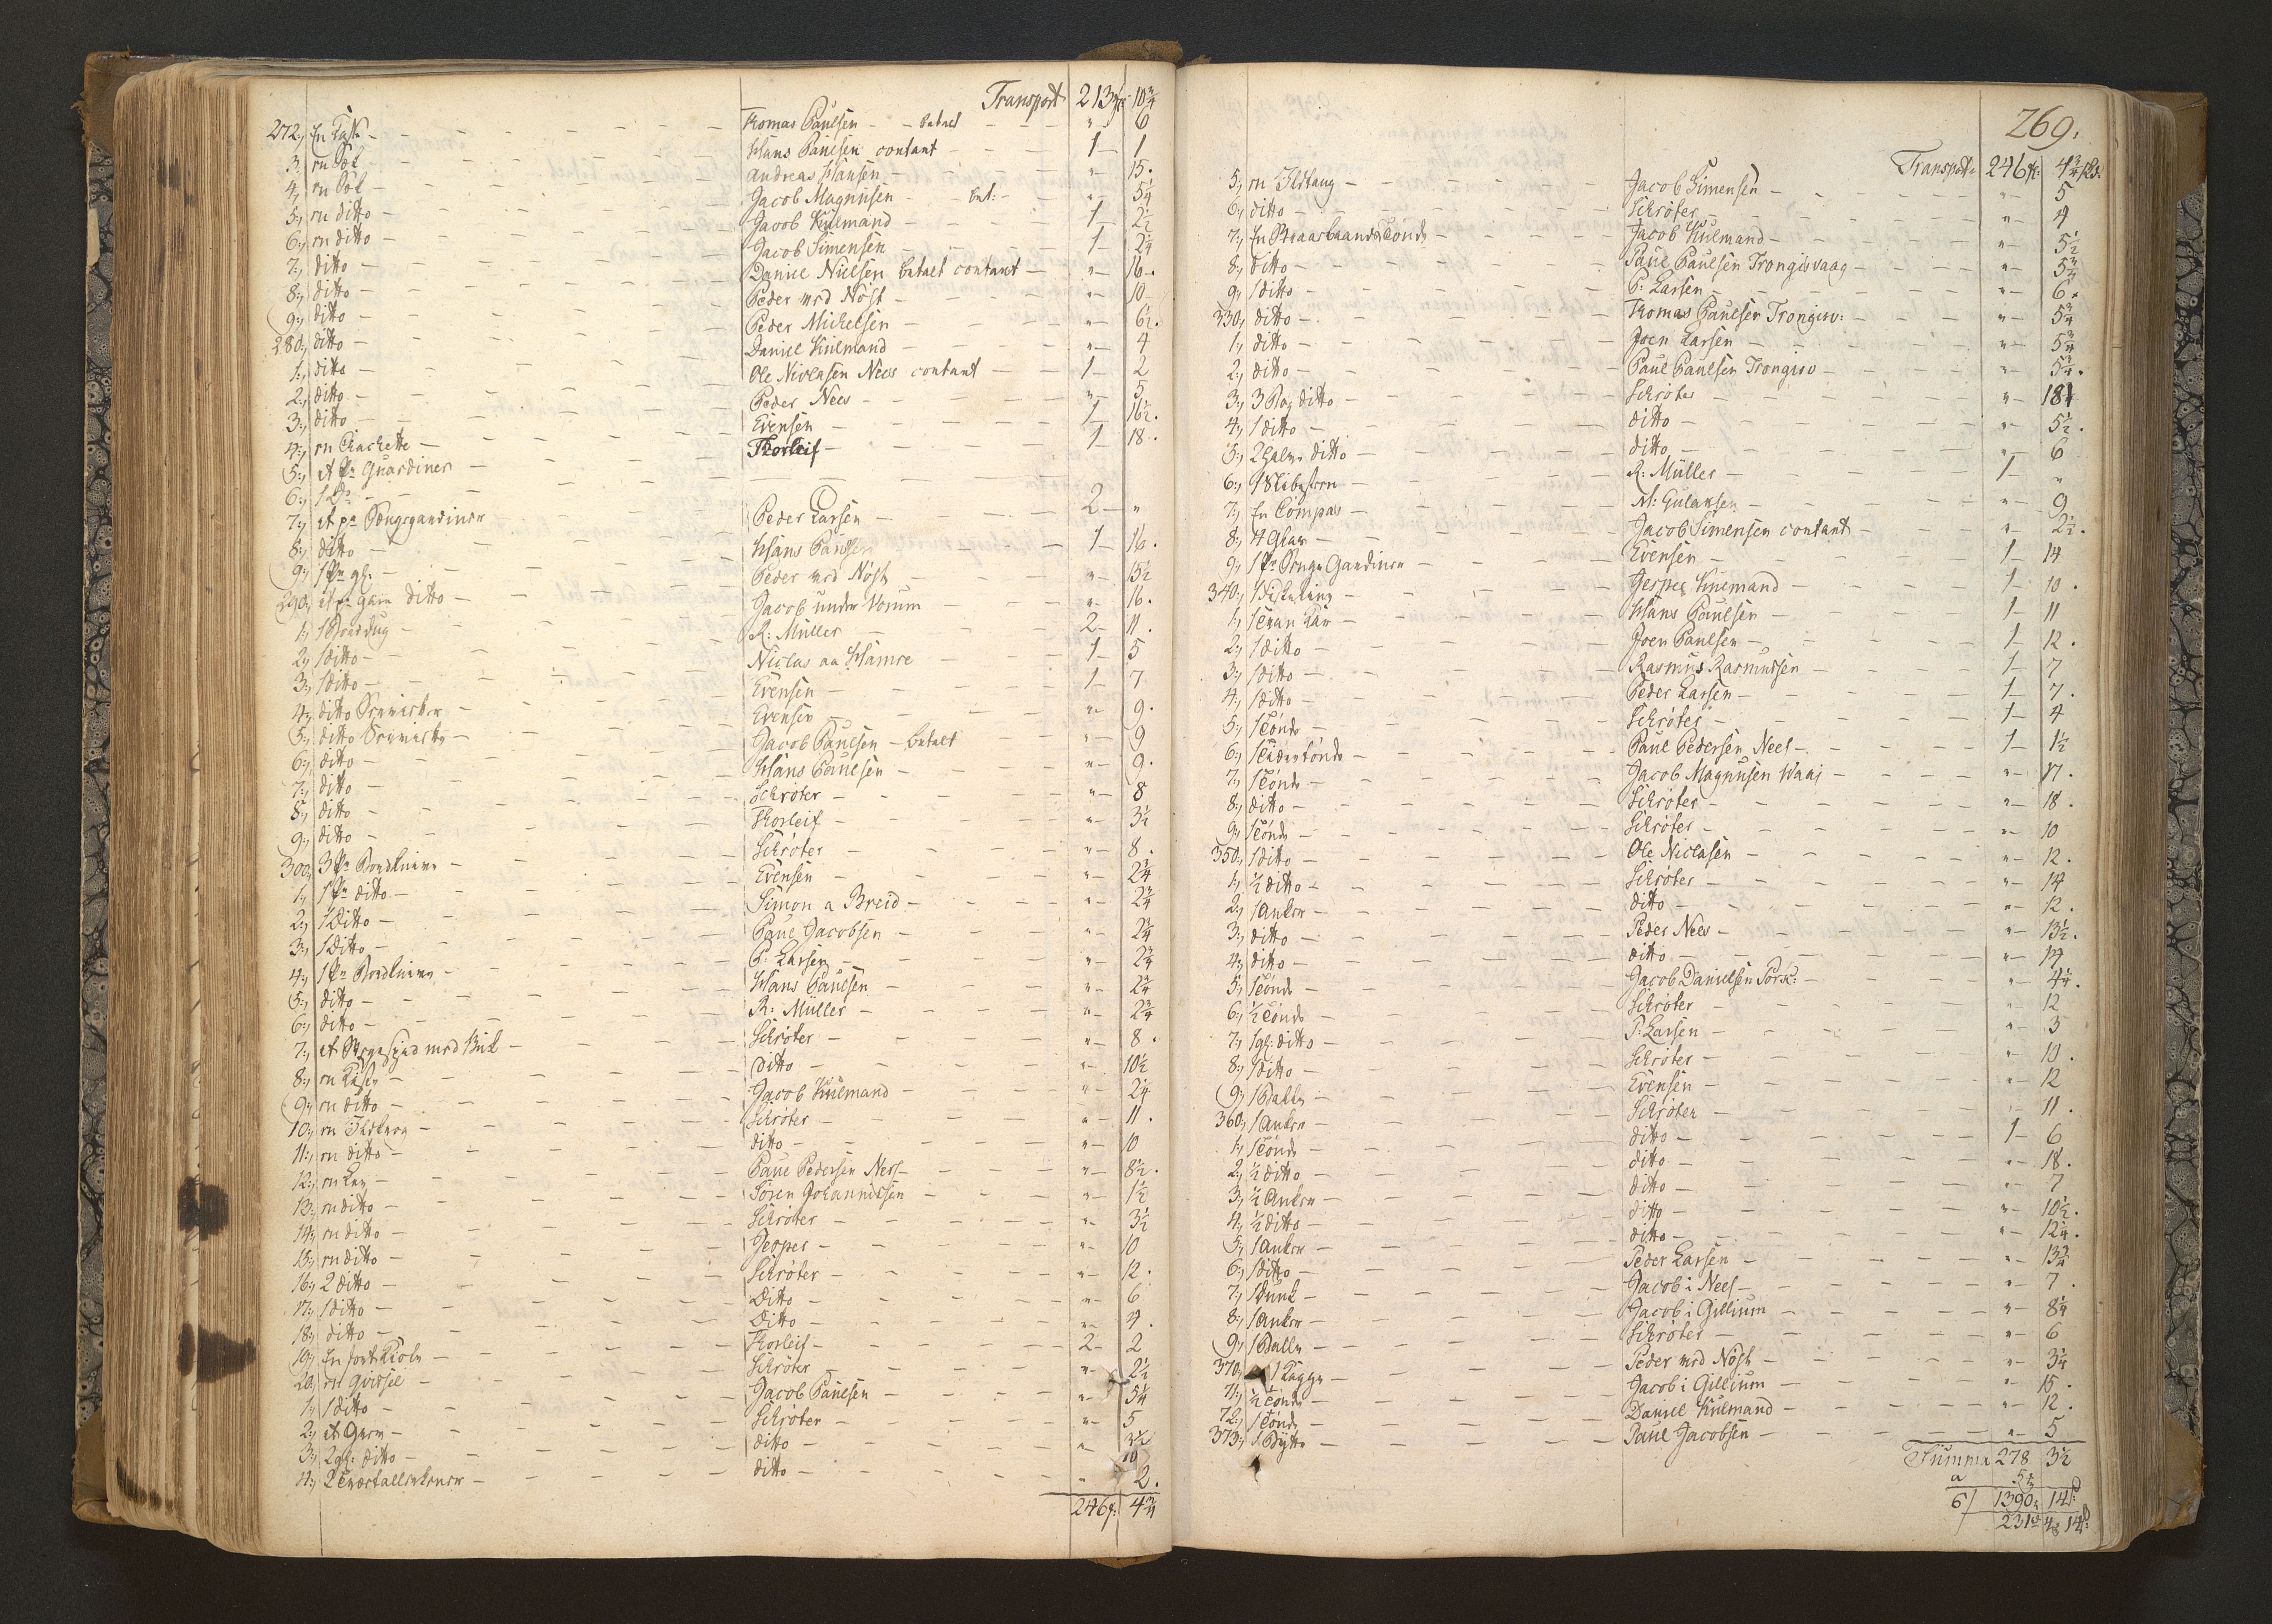 Transport 213 10 3/4
272, En - - - Thomas Paulsen - - betalt - - " 6
3, en - - - Hans Paulsen contant - - 1 - 1
4, en - - - Andreas Hansen - - " 15.
5, en ditto - - - Jacob Magnusen - bet: - " 5 1/4
6, en ditto - - - Jacob Kulmand - - 1 - 2 1/2
7, ditto - - - Jacob Simensen - - 1 - 2 1/4
8, ditto - - - Daniel Nielsen betalt contant - " - 16.
9, ditto - - - Peder med Nöst - - " - 10
280, ditto - - - Peder Michelsen - - " - 6 1/2.
1, ditto - - - Daniel Kulmand - - " - 4
2, ditto - - - Ole Niclasen Nees contant - - 1 - 2
3, ditto - - - Peder Nees - - " - 5
4, en - - - Evensen - - 1 16 1/2.
5, et Pr Guardiner - - - Thorleif - - 1 - 18.
6, 1 Pr - - -
7, et pr Sengegardiner - - - Peder Larsen - - 2 - "
8, ditto - - - Hans Paulsen - - 1 - 16.
9, 1 Pr gl. - - - Peder med Nöst - - " - 15 1/2
290, et pr ditto - - - Jacob under Vorum - - " - 16.
1, 1 Borddug - - - R: Müller - - 2 - 11.
2, 1 ditto - - - Niclas aa Hamre - - 1 - 5
3, 1 ditto - - - Evensen - - 1 - 7
4, ditto - - - Evensen - - " - 9.
5, ditto - - - Jacob Paulsen - betalt - - " - 9
6, ditto - - - Hans Paulsen - - " - 9.
7, ditto - - - Schröter - - " - 8
8, ditto - - - Thorleif - - " - 3 1/2
9, ditto - - - Schröter - - " - 8.
300, 3 Pr Bordknive - - - Evensen - - " - 2 3/4
1, 1 Pr ditto - - - Simon a Breid - - " - 2 3/4
2, 1 Ditto - - - Paul Jacobsen - - " - 2 3/4
3, 1 Ditto - - - P: Larsen - - " - 2 3/4
4, 1 Pr Bordknive - - - Hans Paulsen - - " - 2 3/4
5, ditto - - - R: Müller - - " - 2 3/4
6, ditto - - - Schröter - - " - 8.
7, et med - - - ditto - - " - 10 1/2
8, en - - - Jacob Kulmand - - " - 2 1/4
9, en ditto - - - Schröter - - " - 11.
10, en - - - ditto - - " - 10
11, en ditto - - - Paul Pedersen Nees - - " - 8 1/2.
12, en - - - Sören Johannissen - - " - 1 1/2
13, en ditto - - - Schröter - - " - 3 1/2
14, en ditto - - - Jesper - - " - 10
15, en ditto - - - Schröter - - " - 12.
16, 2 ditto - - - Ditto - - " - 6
17, 1 ditto - - - Ditto - - " - 4.
18, ditto - - - Thorleif - - 2 - 2
19, En sort Kiole - - - Schröter - - " - 2 1/2
20, en - - - Jacob Paulsen - - " - 5 1/4
1, 1 ditto - - - Schröter - - " - 5
2, et Garn - - - ditto - -
3, 2 gl: ditto - - - ditto - - 10
4, 2 - - - " 2.
246 4 3/4
269.
Transport 246 4 3/4
5, en Ildtang - - - Jacob Simensen - - " - 5
6, ditto - - - Schröter - - " - 4
7, En - - - Jacob Kulmand - - " - 5 1/2
8, ditto - - - Paul Paulsen Trongisvaag - - " - 5 3/4
9, 1 ditto - - - P: Larsen - - " - 6.
330, ditto - - - Thomas Paulsen Trongisv: - - " - 5 3/4
1, ditto - - - Joen Larsen - - " - 5 3/4
2, ditto - - - Paul Paulsen Trongisv - - " - 5 3/4.
3, 3 ditto - - - Schröter - - " - 18
4, 1 ditto - - - ditto - - " - 5 1/2.
5, 2 ditto - - - ditto - - " - 6
6, 1 Slibesteen - - - R: Müller - - 1 - "
7, En Compas - - - M: - - " - 9
8, 4 Glas - - - Jacob Simensen contant - - " - 2 1/2.
9, 1 Pr Senge Gardiner - - - Evensen - - 1 - 14
340, 1 - - - Jesper Kulmand - - 1 - 10.
1, 1 Kar - - - Hans Paulsen - - 1 - 11
2, 1 ditto - - - Joen Paulsen - - 1 - 12.
3, 1 ditto - - - Rasmus Rasmussen - - 1 - 7
4, 1 ditto - - - Peder Larsen - - 1 - 7.
5, 1 Tönde - - - Schröter - - 1 - 4
6, 1 - - - Paul Pedersen Nees - - 1 - 1 1/2
7, 1 Tönde - - - Jacob Magnusen Waai - - " - 17.
8, ditto - - - Schröter - - " - 18.
9, 1 Tönde - - - Schröter - - " - 10
350, 1 ditto - - - Ole Niclasen - - " - 12.
1, 1/2 ditto - - - Schröter - - " - 14
2, 1 Anker - - - ditto - - " - 12.
3, ditto - - - Peder Nees - - " - 13 1/2.
4, ditto - - - ditto - - " - 14
5, 1 Tönde - - - Jacob Danielsen - - " - 4 1/4.
6, 1/2 Tönde - - - Schröter - - " 12
7, 1 gl: ditto - - - P: Larsen - - " - 3
8, 1 ditto - - - Schröter - - " - 10.
9, 1 Balle - - - Evensen - - " - 12
360, 1 Anker - - - Schröter - - 11.
1, 1 Tönde - - - ditto - - 1 - 6
2, 1/2 ditto - - - ditto - - " - 18.
3, 1/2 Anker - - - ditto - - " - 7
4, 1/2 ditto - - - ditto - - " - 10 1/2.
5, 1 Anker - - - ditto - - " - 12 1/4.
6, 1 ditto - - - Peder Larsen - - " - 13 3/4
7, 1 Dunk - - - Jacob i Nees - - " - 7.
8, 1 Anker - - - Jacob i Gillium - - " - 8 1/4
9, 1 Balle - - - Schröter - - " - 6
370, 1 Kagge - - - Peder med Nöst - - " - 3 1/4
71, 1/2 Tönde - - - Jacob i Gillium - - " - 15.
72, 1 Tönde - - - Daniel Kulmand - - " - 12.
373, 1 Bytte - - - Paul Jacobsen - - " - 5
Summa 278 3 1/2
a 5
6/ 1390 14
231 4 14